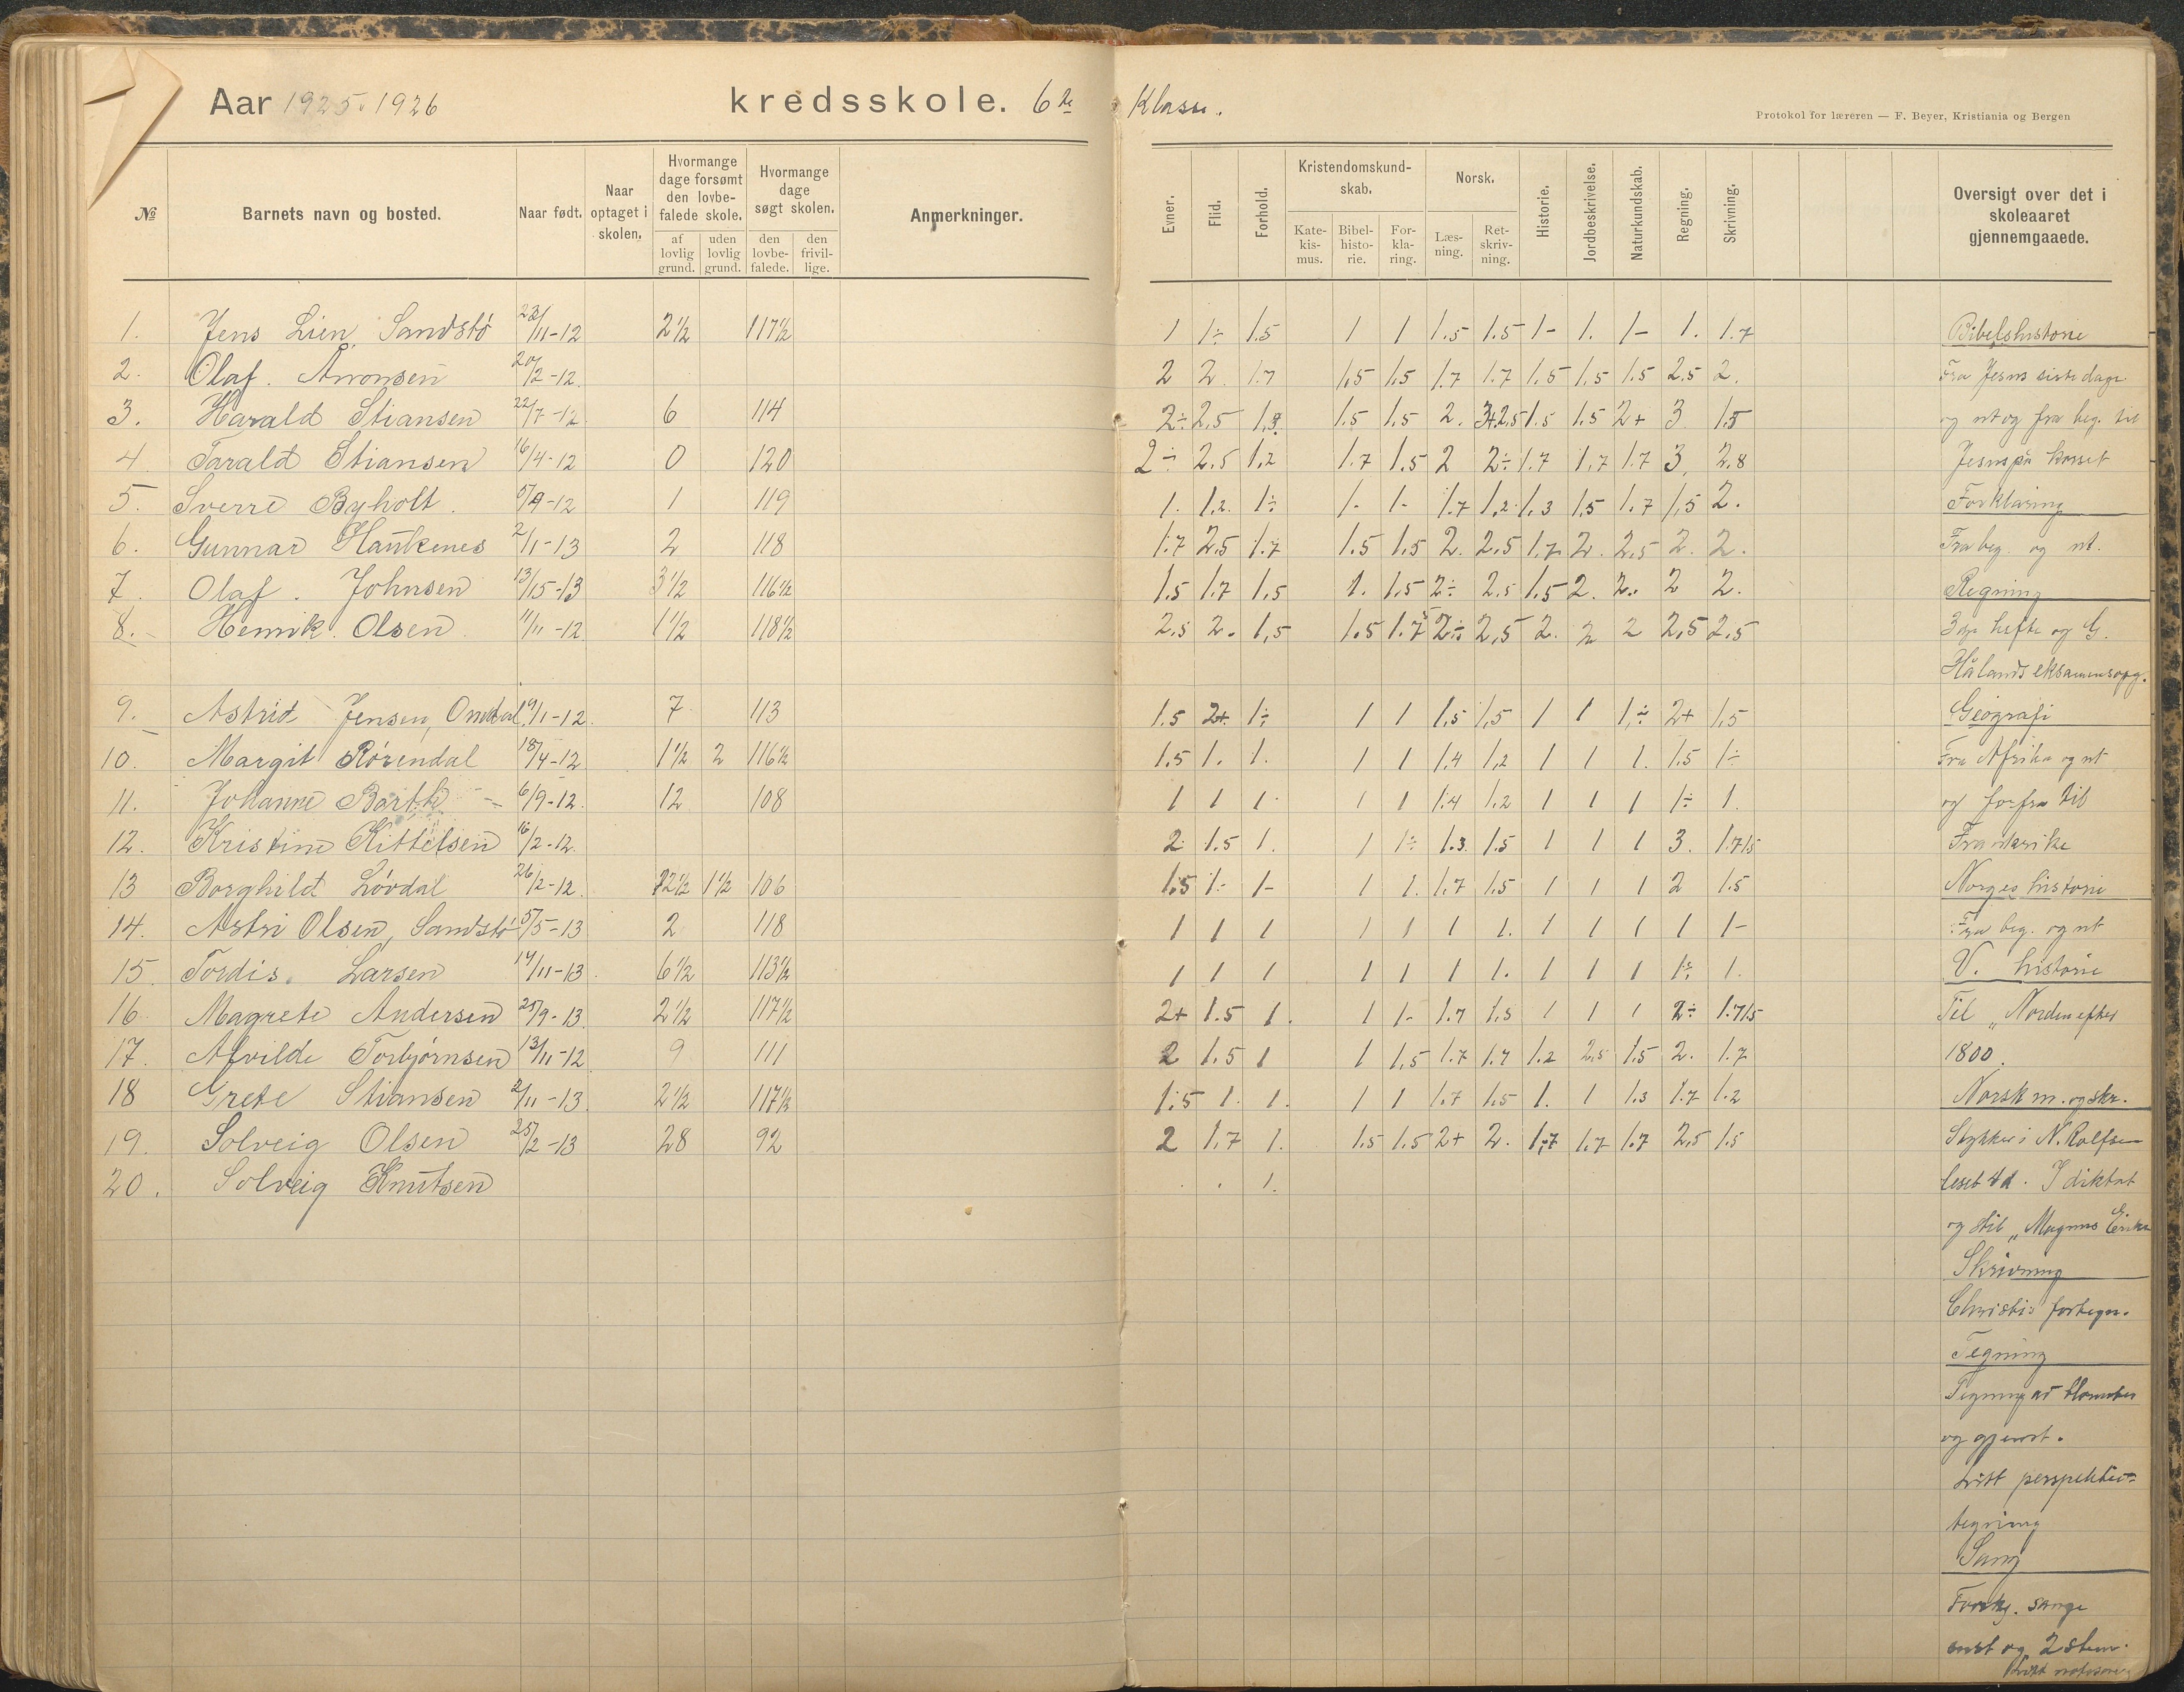 Aar 1925-1926 kredsskole. 6te Klasse.
Protokol for læreren — F. Beyer, Kristiania og Bergen
№ Barnets navn og bosted. Naar født. Naar optaget i skolen. Hvormange dage forsømt den lovbefalede skole. Hvormange dage søgt skolen. Anmerkninger.
af lovlig grund. uden lovlig grund. den lovbefalede. den frivillige.
Evner. Flid. Forhold. Kristendomskundskab. Norsk. Historie. Jordbeskrivelse. Naturkundskab. Regning. Skrivning. Oversigt over det i skoleaaret gjennemgaaede.
Katekismus. Bibelhistorie. Forklaring. Læsning. Retskrivning.
1. Jens Lien, Sandstø 23/11-12 2½ 117½ 1 1÷ 1.5 1 1 1.5 1.5 1- 1. 1- 1. 1.7 Bibelshistorie
2. Olaf. Aronsen 20/2-12. 2 2. 1.7 1.5 1.5 1.7 1.7 1.5 1.5 1.5 2.5 2. Fra Jesus siste dage
3. Harald Stiansen 22/7-12 6 114 2÷ 2.5 1.5 1.5 2. 1.5 1.5 2+ 3 1.5 og ut og fra beg. til
4. Tarald Stiansen 16/4-12 0 120 2÷ 2.5 1.2 1.7 1.5 2 2÷ 1.7 1.7 1.7 3. 2.8 Jesus på korset
5. Sverre Byholt. 5/9-12 1 119 1. 1.2. 1÷ 1- 1- 1.7 1.2. 1.3 1.5 1.7 1.5 2. Forklaring
6. Gunnar Haukenes 2/1-13 2 118 1.7 2.5 1.7 1.5 1.5 2. 2.5 1.7 2. 2.5 2. 2. Fra beg. og ut.
7. Olaf. Johnsen 13/15-13 3½ 116½ 1.5 1.7 1.5 1. 1.5 2÷ 2.5 1.5 2. 2. 2 2. Regning
8. Henrik. Olsen. 11/11-12 1½ 118½ 2.5 2. 1,5 1.5 2÷ 2,5 2. 2 2 2,5 2.5 3dje hefte og G.
Hålands eksamensopg.
9. Astrid Jensen, Omdal. 19/1-12. 7 113 1.5 2+ 1÷ 1 1 1,5 1,5 1 1 1÷ 2+ 1.5 Geografi
10. Margit Rørendal 18/4-12 1½ 2 116½ 1.5 1. 1. 1 1 1.4 1,2 1 1 1. 1.5 1÷ Fra Afrika og ut
11. Johanne Barth 6/9-12. 12 108 1 1 1 1 1 1.4 1.2 1 1 1 1÷ 1. og forfra til
12. Kristine Kittelsen 16/2-12. 2 1.5 1. 1 1÷ 1.3. 1.5 1 1 1 3. 1.7 1.5 Frankrike
13 Borghild Løvdal 26/2-12. 12½ 1½ 106 1.5 1- 1- 1 1. 1.7 1.5 1 1 1 2 1.5 Norges historie
14. Astri Olsen, Sandstø 5/5-13 2 118 1 1 1 1 1 1 1. 1 1 1 1 1- Fra beg. og ut
15. Tordis. Larsen 14/11-13. 6½ 113½ 1 1 1 1 1 1 1. 1 1 1 1÷ 1. V. historie
16 Magrete Andersen 25/9-13. 2½ 117½ 2+ 1.5 1. 1 1- 1.7 1.5 1 1 1 2÷ 1.7 1.5 Til „Norden efter
17. Afvilde Torbjørnsen 13/11-12 9 111 2 1.5 1 1 1,5 1.7 1.7 1.2 2.5 1.5 2. 1.7 1800.
18 Grete Stiansen 2/11-13. 2½ 117½ 1.5 1. 1. 1 1 1.7 1.5 1. 1 1.3 1.7 1.2 Norsk m. og skr.
19. Solveig Olsen 25/2-13 28 92 2 1.7 1. 1.5 1.5 2+ 2. 1.7 1.7 1.7 2,5 1.5 Stykker i N. Rolfsen
20. Solveig Knutsen 1. leseb 4d. I diktat
og stil „Magnus
Skrivning
Christis
Tegning
Tegning av blomster
og gjenst.
Litt perspektiv-
tegning
Sang
sange
og 2 stem.
Litt